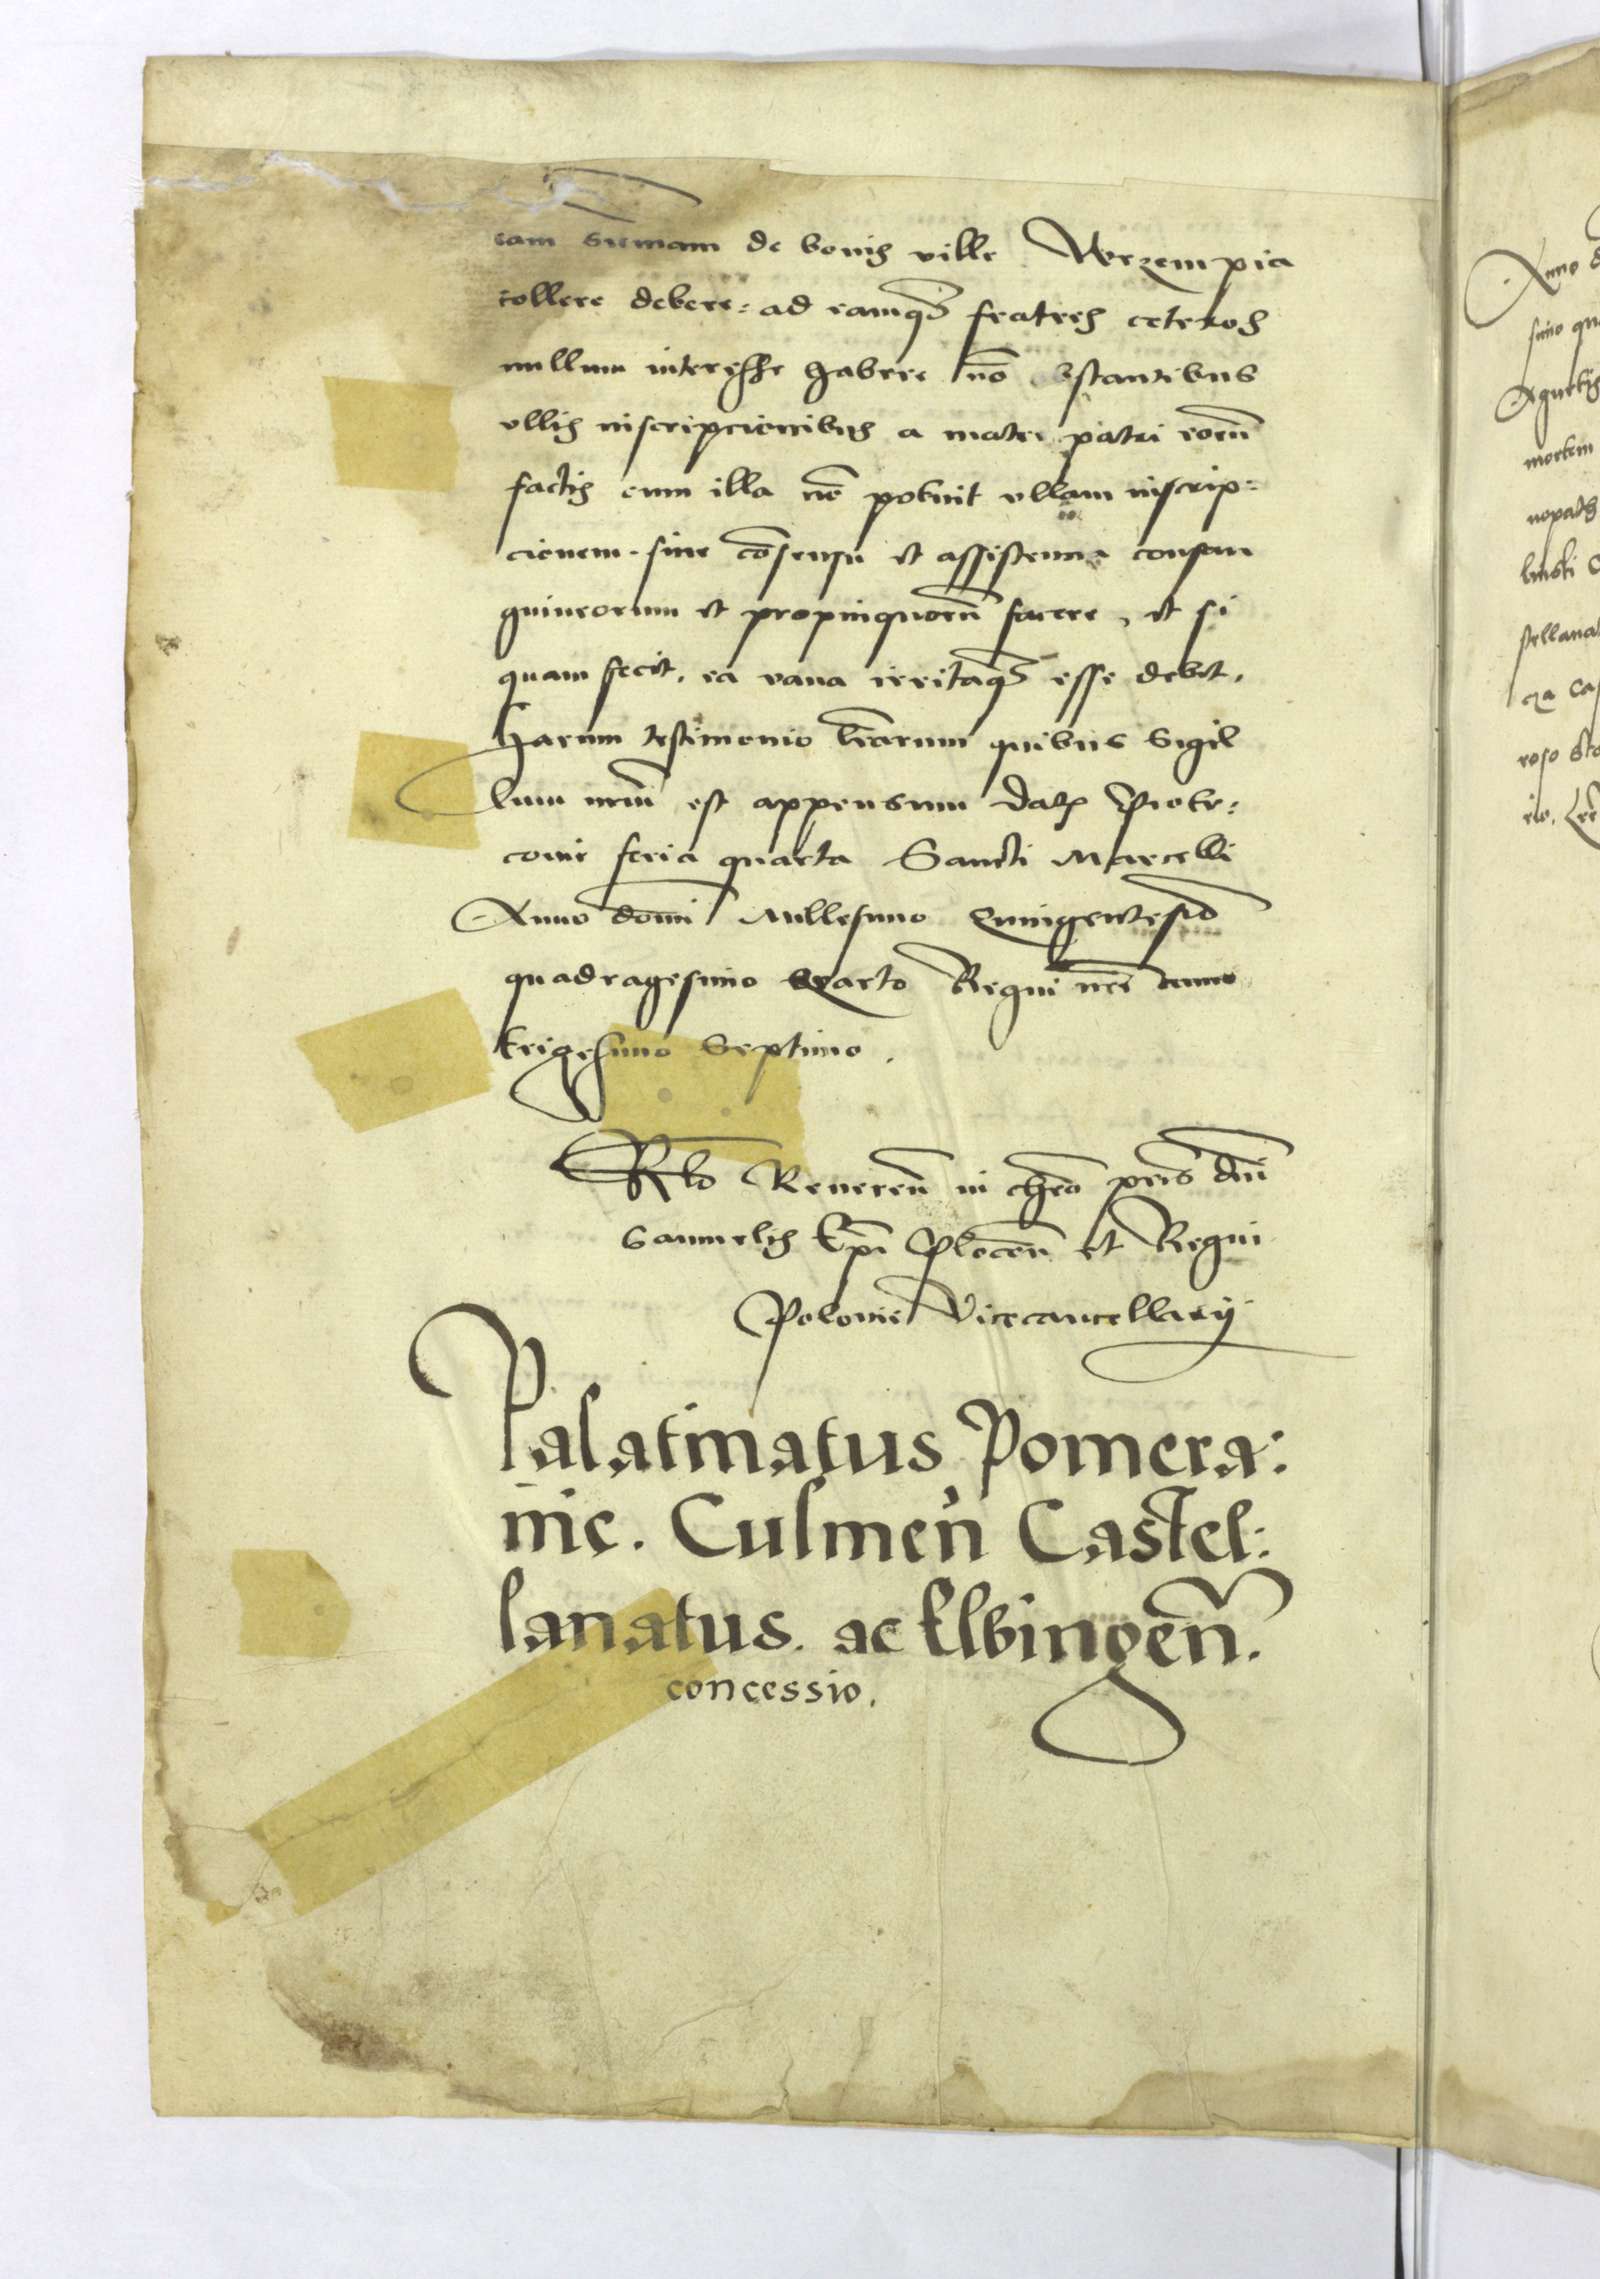 eam sum̄am de bonis ville Wrzempia
tollere debere: ad eamq3 fratres ceteros
nullum interesse habere nō obstantibus
ullis inscripcionibus a matre patri eorū
factis cum illa nō potuit ullam inscrip:
cionem. sine cōsensu et assistencia consan
guineorum et propinquorū facere, et si
quam fecit. ea vana irritaq3 esse debet.
Harum testimonio l̄rarum quibus Sigil
lum nr̄m est appensum Dat Piotr:
covie feria quarta Sancti Marcelli
Anno domī Millesimo Quingentesīo
quadragesimo Quarto Regni nrī anno
trigesimo Septimo.
Rlō Reverēn in chrō prīs dnī
Samuelis Epī Plocēn et Regni
Polonie Vicecancellarij
Palatinatus Pomera:
nie. Culmeñ Castel:
lanatus. ac Elbingēn.
concessio.
Anno
simo
mortem
stellanat
roso